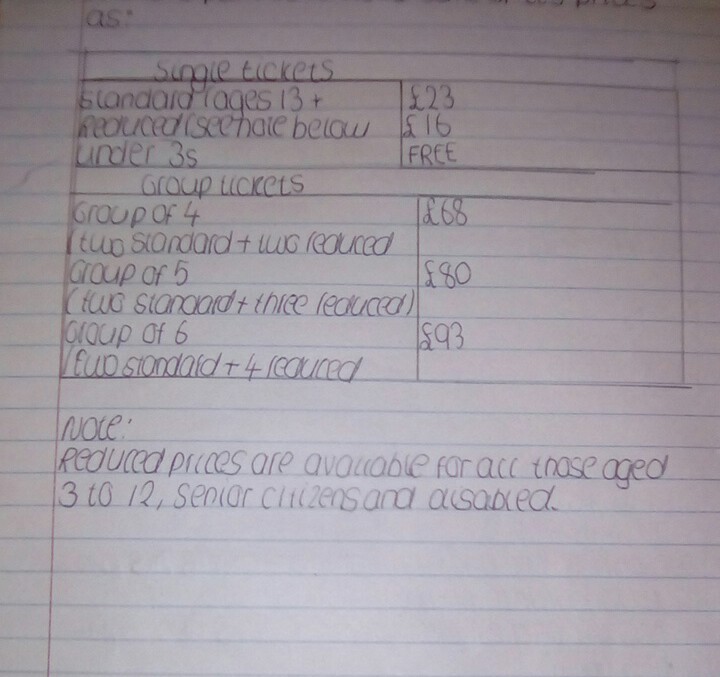 prices
as:
Single tickets
Standard (ages 13+ £23
Reduced (see note below £16
under 3s FREE
Group tickets
Group of 4 £68
(two standard + two reduced
Group of 5 £80
(two standard + three reduced)
Group of 6 £93
(two standard + 4 reduced
Note:
Reduced prices are available for all those aged
3 to 12, senior citizens and disabled.